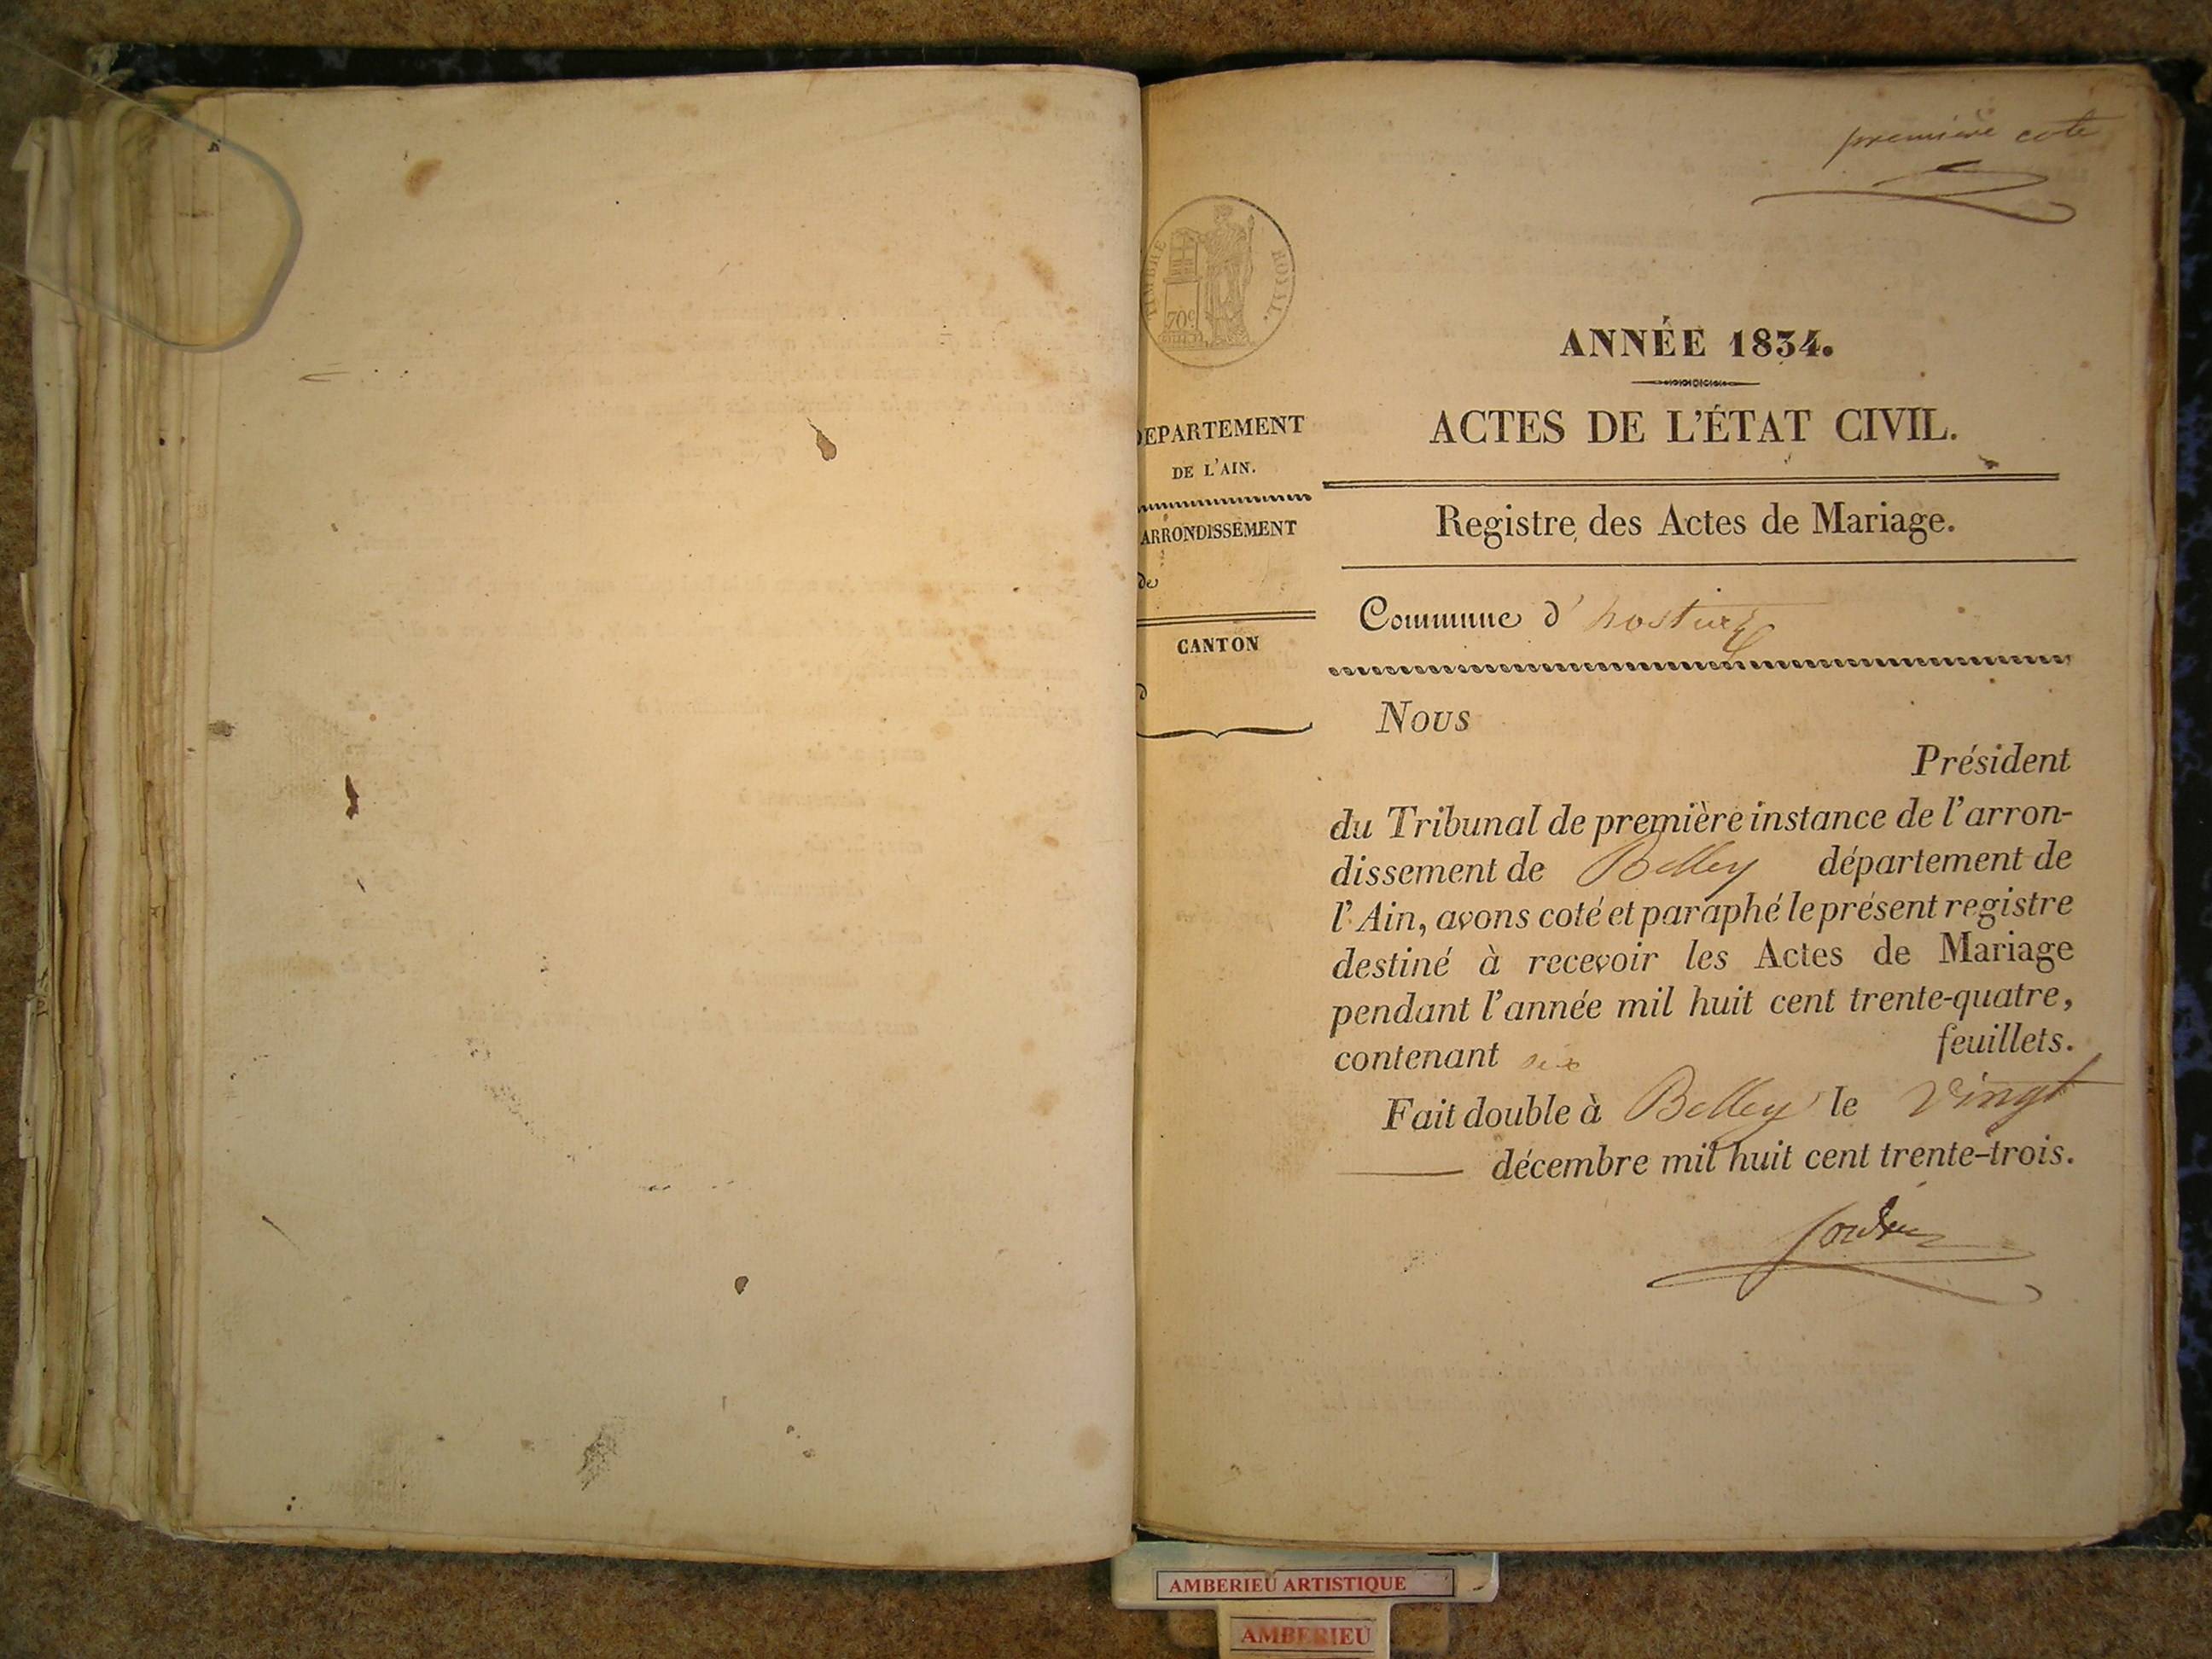 première cote
TIMBRE ROYAL.
70c
ANNÉE 1834.
ACTES DE L'ÉTAT CIVIL.
DEPARTEMENT
DE L'AIN.
ARRONDISSEMENT
de
CANTON
d
Registre des Actes de Mariage.
Commune d'hostiaz
Nous
Président
du Tribunal de première instance de l'arron-
dissement de Belley département de
l'Ain, avons coté et paraphé le présent registre
destiné à recevoir les Actes de Mariage
pendant l'année mil huit cent trente-quatre,
contenant six feuillets.
Fait double à Belley le vingt
décembre mil huit cent trente-trois.
AMBERIEU ARTISTIQUE
AMBERIEU